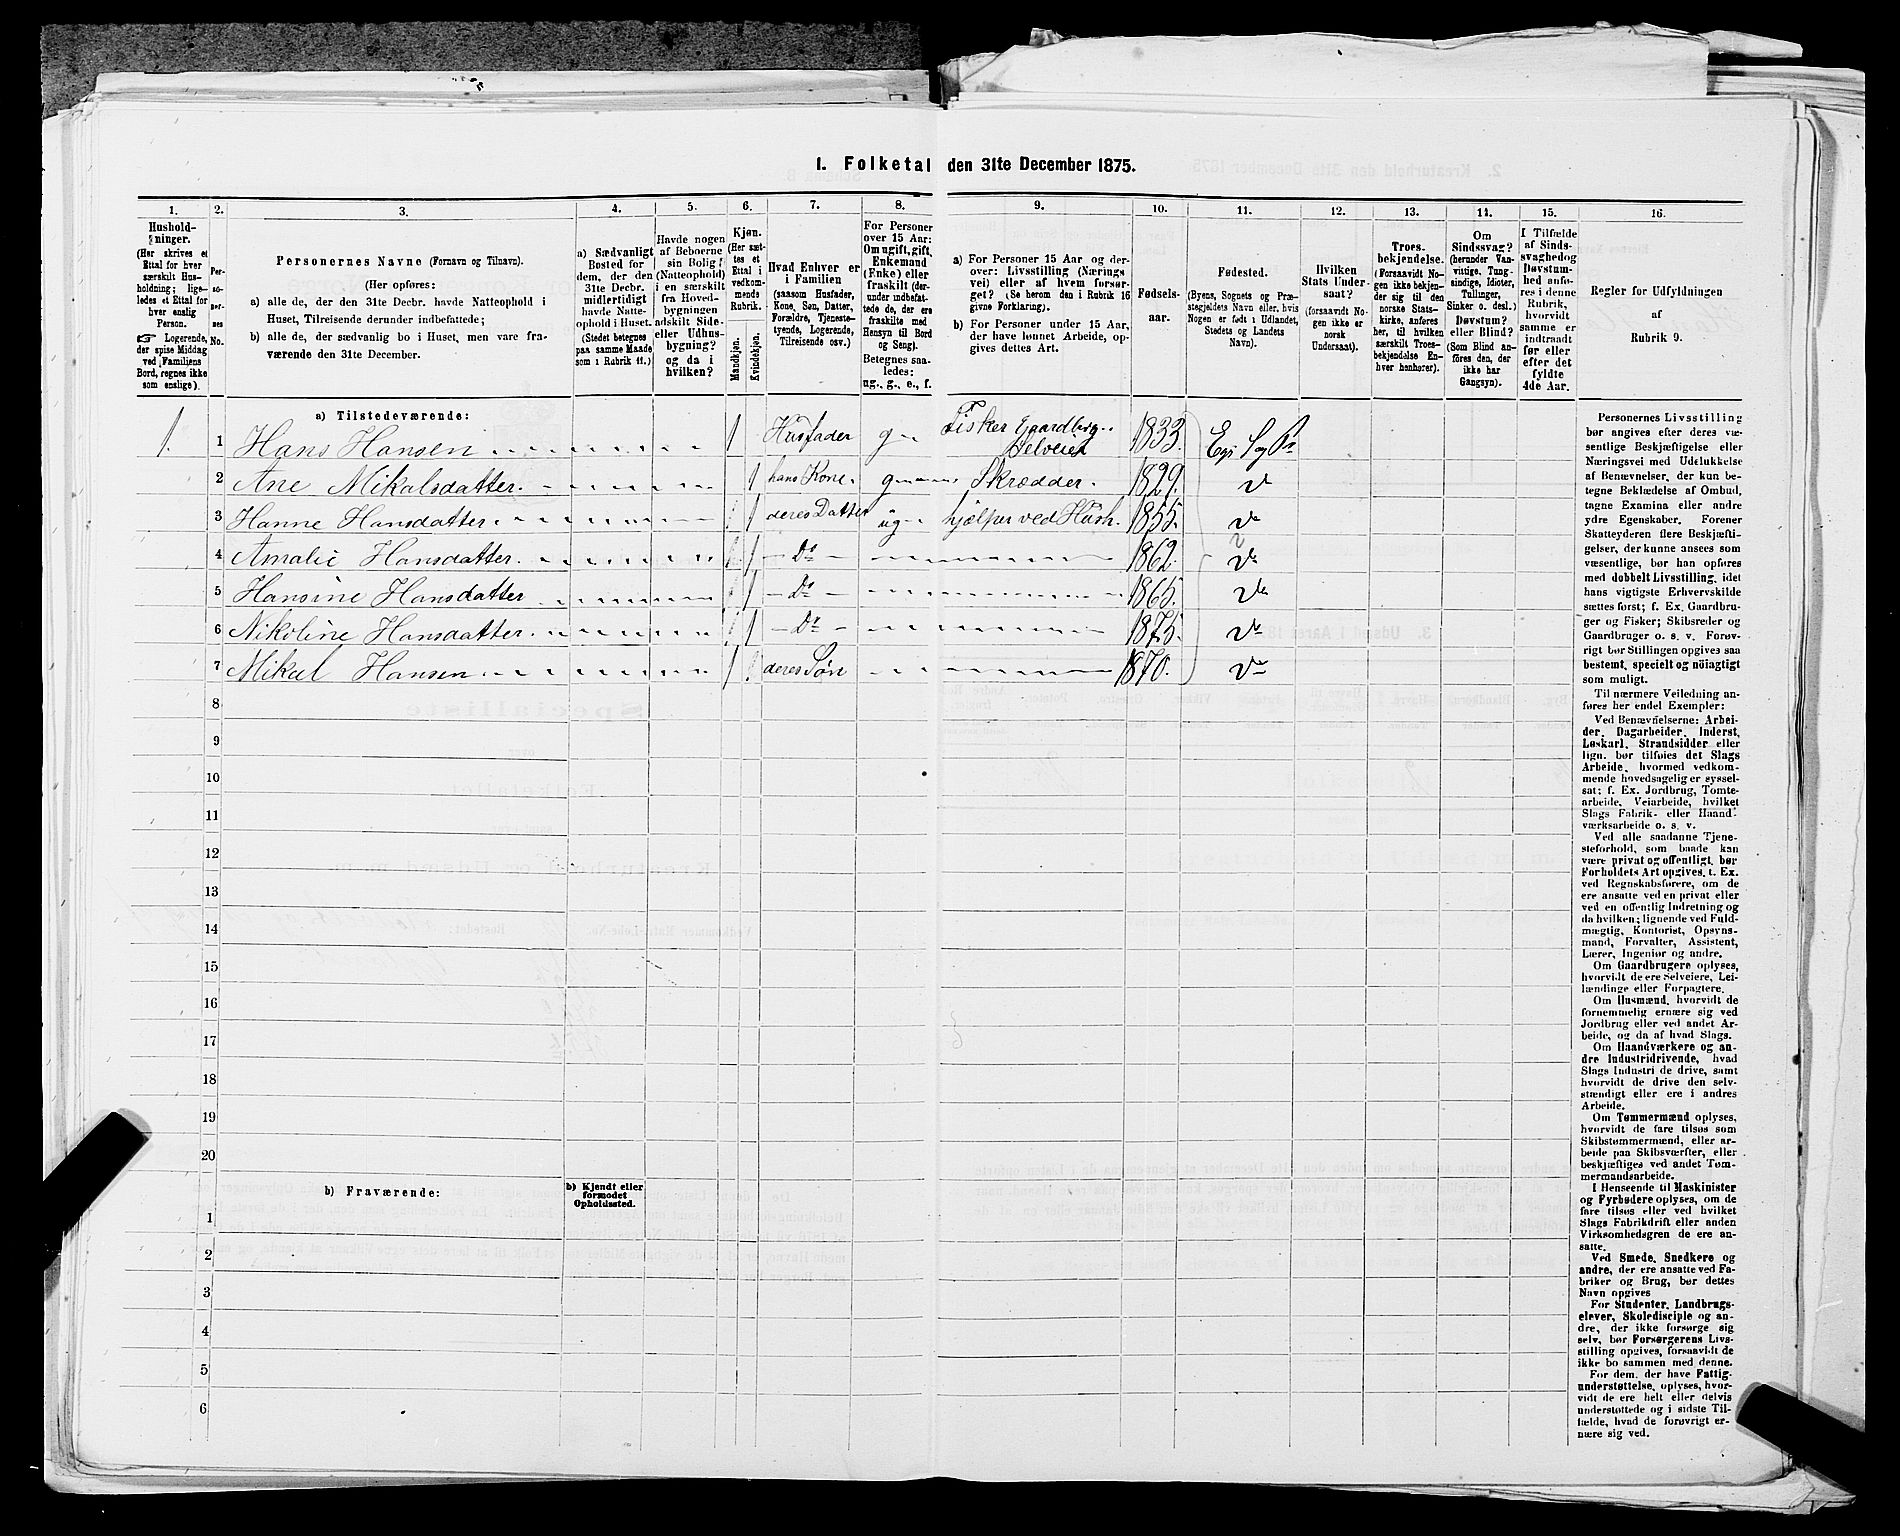 1. Folketal den 31te December 1875.
1. 2. 3. 4. 5. 6. 7. 8. 9. 10. 11. 12. 13. 14. 15. 16.
Hushold-
ninger.
(Her skrives et
Ettal for hver
særskilt Hus-
holdning; lige-
ledes et Ettal for
hver enslig
Person.
☞ Logerende,
der spise Middag
ved Familiens
Bord, regnes ikke
som enslige).
Per-
so-
ner-
nes
No.
Personernes Navne (Fornavn og Tilnavn).
(Her opføres:
a) alle de, der den 31te Decbr. havde Natteophold i
Huset, Tilreisende derunder indbefattede;
b) alle de, der sædvanlig bo i Huset, men vare fra-
værende den 31te December.
a) Sædvanligt
Bosted for
dem, der den
31te Decbr.
midlertidigt
havde Natte-
ophold i Huset.
(Stedet betegnes
paa samme Maade
som i Rubrik 11.)
Havde nogen
af Beboerne
sin Bolig
(Natteophold)
i en særskilt
fra Hoved-
bygningen
adskilt Side-
eller Udhus-
bygning?
og da i
hvilken?
Kjøn.
(Her sæt-
tes et
Ettal i
vedkom-
mende
Rubrik.
Mandkjøn.
Kvindekjøn.
Hvad Enhver er
i Familien
(saasom Husfader,
Kone, Søn, Datter,
Forældre, Tjeneste-
tyende, Logerende,
Tilreisende osv.)
For Personer
over 15 Aar:
Om ugift, gift,
Enkemand
(Enke) eller
fraskilt (der-
under indbefat-
tede de, der ere
fraskilte med
Hensyn til Bord
og Seng).
Betegnes saa-
ledes:
ug., g., e., f.
a) For Personer 15 Aar og der-
over: Livsstilling (Nærings
vei) eller af hvem forsør-
get? (Se herom den i Rubrik 16
givne Forklaring).
b) For Personer under 15 Aar,
der have lønnet Arbeide, op-
gives dettes Art.
Fødsels-
aar.
Fødested.
(Byens, Sognets og Præ-
stegjeldets Navn eller, hvis
Nogen er født i Udlandet,
Stedets og Landets
Navn).
Hvilken
Stats Under-
saat?
(forsaavidt No-
gen ikke er
norsk
Undersaat).
Troes-
bekjendelse.
(Forsaavidt No-
gen ikke bekjen-
der sig til den
norske Stats-
kirke, anføres
her, til hvilken
særskilt Troes-
bekjendelse En-
hver henhører).
Om
Sindssvag?
(herunder Van-
vittige, Tung-
sindige, Idioter,
Tullinger,
Sinker o. desl.)
Døvstum?
eller Blind?
(Som Blind an-
føres den, der
ikke har
Gangsyn).
I Tilfælde
af Sinds-
svaghed og
Døvstum-
hed anfø-
res i denne
Rubrik,
hvorvidt
samme er
indtraadt
før eller
efter det
fyldte
4de Aar.
Regler for Udfyldningen
af
Rubrik 9.
a) Tilstedeværende:
1 1 Hans Hansen 1 Husfader g Fisker Gaardbrg. Selveier 1833
2 Ane Mikalsdatter 1 hans Kone g Skrædder. 1829. do
3 Hanne Hansdatter 1 deres Datter ug hjelper ved Hush. 1855. do
4 Amalie Hansdatter 1 Do 1862. do
5 Hansine Hansdatter 1 Do 1865. do
6 Nikoline Hansdatter 1 Do 1875. do
7 Mikal Hansen 1 deres Søn 1870. do
8
9
10
11
12
13
14
15
16
17
18
19
20
b) Fraværende: b) Kjendt eller
formodet
Opholdssted.
1
2
3
4
5
6
Personernes Livsstilling
bør angives efter deres væ-
sentlige Beskjæftigelse eller
Næringsvei med Udelukkelse
af Benævnelser, der kun be-
tegne Beklædelse af Ombud,
tagne Examina eller andre
ydre Egenskaber. Forener
Skatteyderen flere Beskjæfti-
gelser, der kunne ansees som
væsentlige, bør han opføres
med dobbelt Livsstilling, idet
hans vigtigste Erhvervskilde
sættes først; f. Ex. Gaardbru-
ger og Fisker; Skibsreder og
Gaardbruger o. s. v. Forøv-
rigt bør Stillingen opgives saa
bestemt, specielt og nøiagtigt
som muligt.
Til nærmere Veiledning an-
føres her endel Exempler:
Ved Benævnelserne: Arbei-
der, Dagarbeider, Inderst,
Løskarl, Strandsidder eller
lign. bør tilføies det Slags
Arbeide, hvormed vedkom-
mende hovedsagelig er syssel-
sat; f. Ex. Jordbrug, Tomte-
arbeide, Veiarbeide, hvilket
Slags Fabrik- eller Haand-
værksarbeide o. s. v.
Ved alle saadanne Tjene-
steforhold, som baade kan
være privat og offentligt, bør
Forholdets Art opgives, t. Ex.
ved Regnskabsførere, om de
ere ansatte ved en privat eller
ved en offentlig Indretning og
da hvilken; lignende ved Fuld-
mægtig, Kontorist, Opsyns-
mand, Forvalter, Assistent,
Lærer, Ingeniør og andre.
Om Gaardbrugere oplyses,
hvorvidt de ere Selveiere, Lei-
lændinge eller Forpagtere.
Om Husmænd, hvorvidt de
fornemmelig ernære sig ved
Jordbrug eller ved andet Ar-
beide, og da af hvad Slags.
Om Haandværkere og an-
dre Industridrivende, hvad
Slags Industri de drive, samt
hvorvidt de drive den selv-
stændigt eller ere i andres
Arbeide.
Om Tømmermænd oplyses,
hvorvidt de fare tilsøs som
Skibstømmermænd, eller ar-
beide paa Skibsværfter, eller
beskjæftiges ved andet Tøm-
mermandsarbeide.
I Henseende til Maskinister
og Fyrbødere oplyses, om de
fare tilsøs eller ved hvilket
Slags Fabrikdrift eller anden
Virksomhedsgren de ere an-
satte.
Ved Smede, Snedkere og
andre, der ere ansatte ved Fa-
briker og Brug, bør dettes
Navn opgives
For Studenter, Landbrugs-
elever, Skoledisciple og an-
dre, der ikke forsørge sig
selv, bør Forsørgerens Livs-
stilling opgives, forsaavidt de
ikke bo sammen med denne.
For dem, der have Fattig-
understøttelse, oplyses, hvor-
vidt de ere helt eller delvis
understøttede og i sidste Til-
fælde, hvad de forøvrigt er-
nære sig ved.